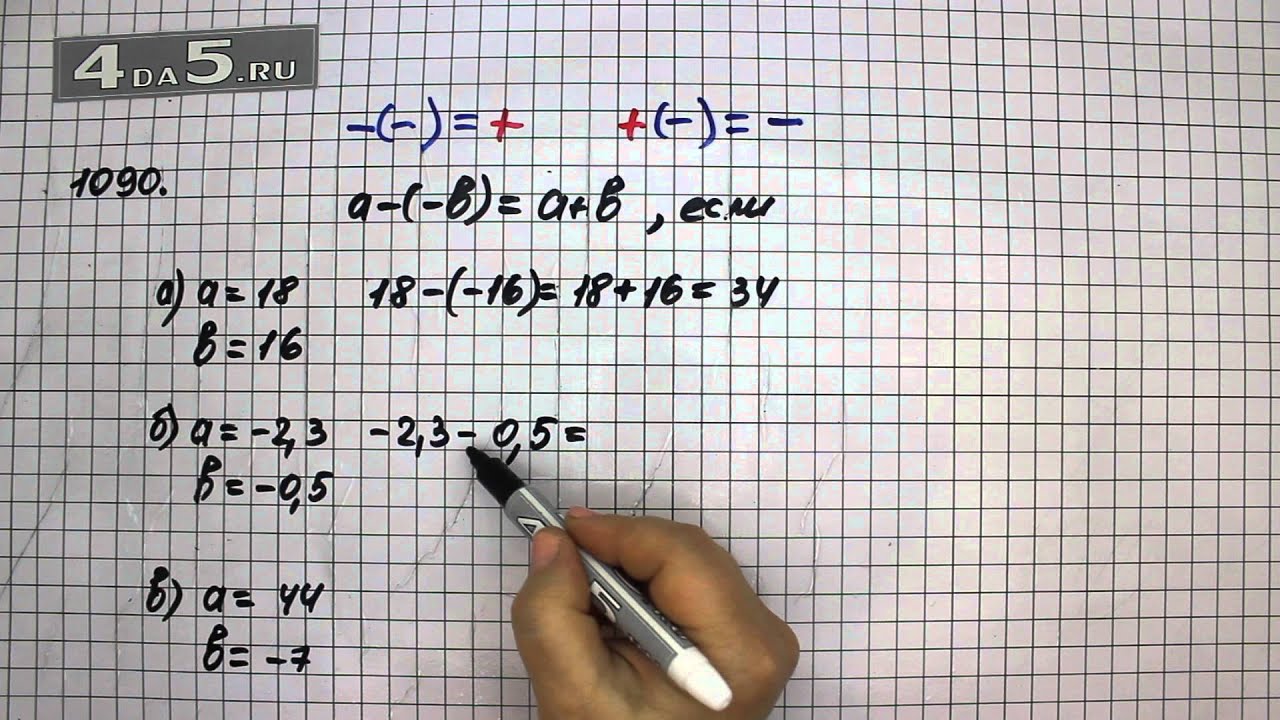 4DA5.RU
-(-) = + +(-) = -
1090.
a-(-в) = a+в , если
а) a = 18 18-(-16) = 18+16 = 34
в = 16
б) a = -2,3 -2,3 - 0,5 =
в = -0,5
в) a = 44
в = -7